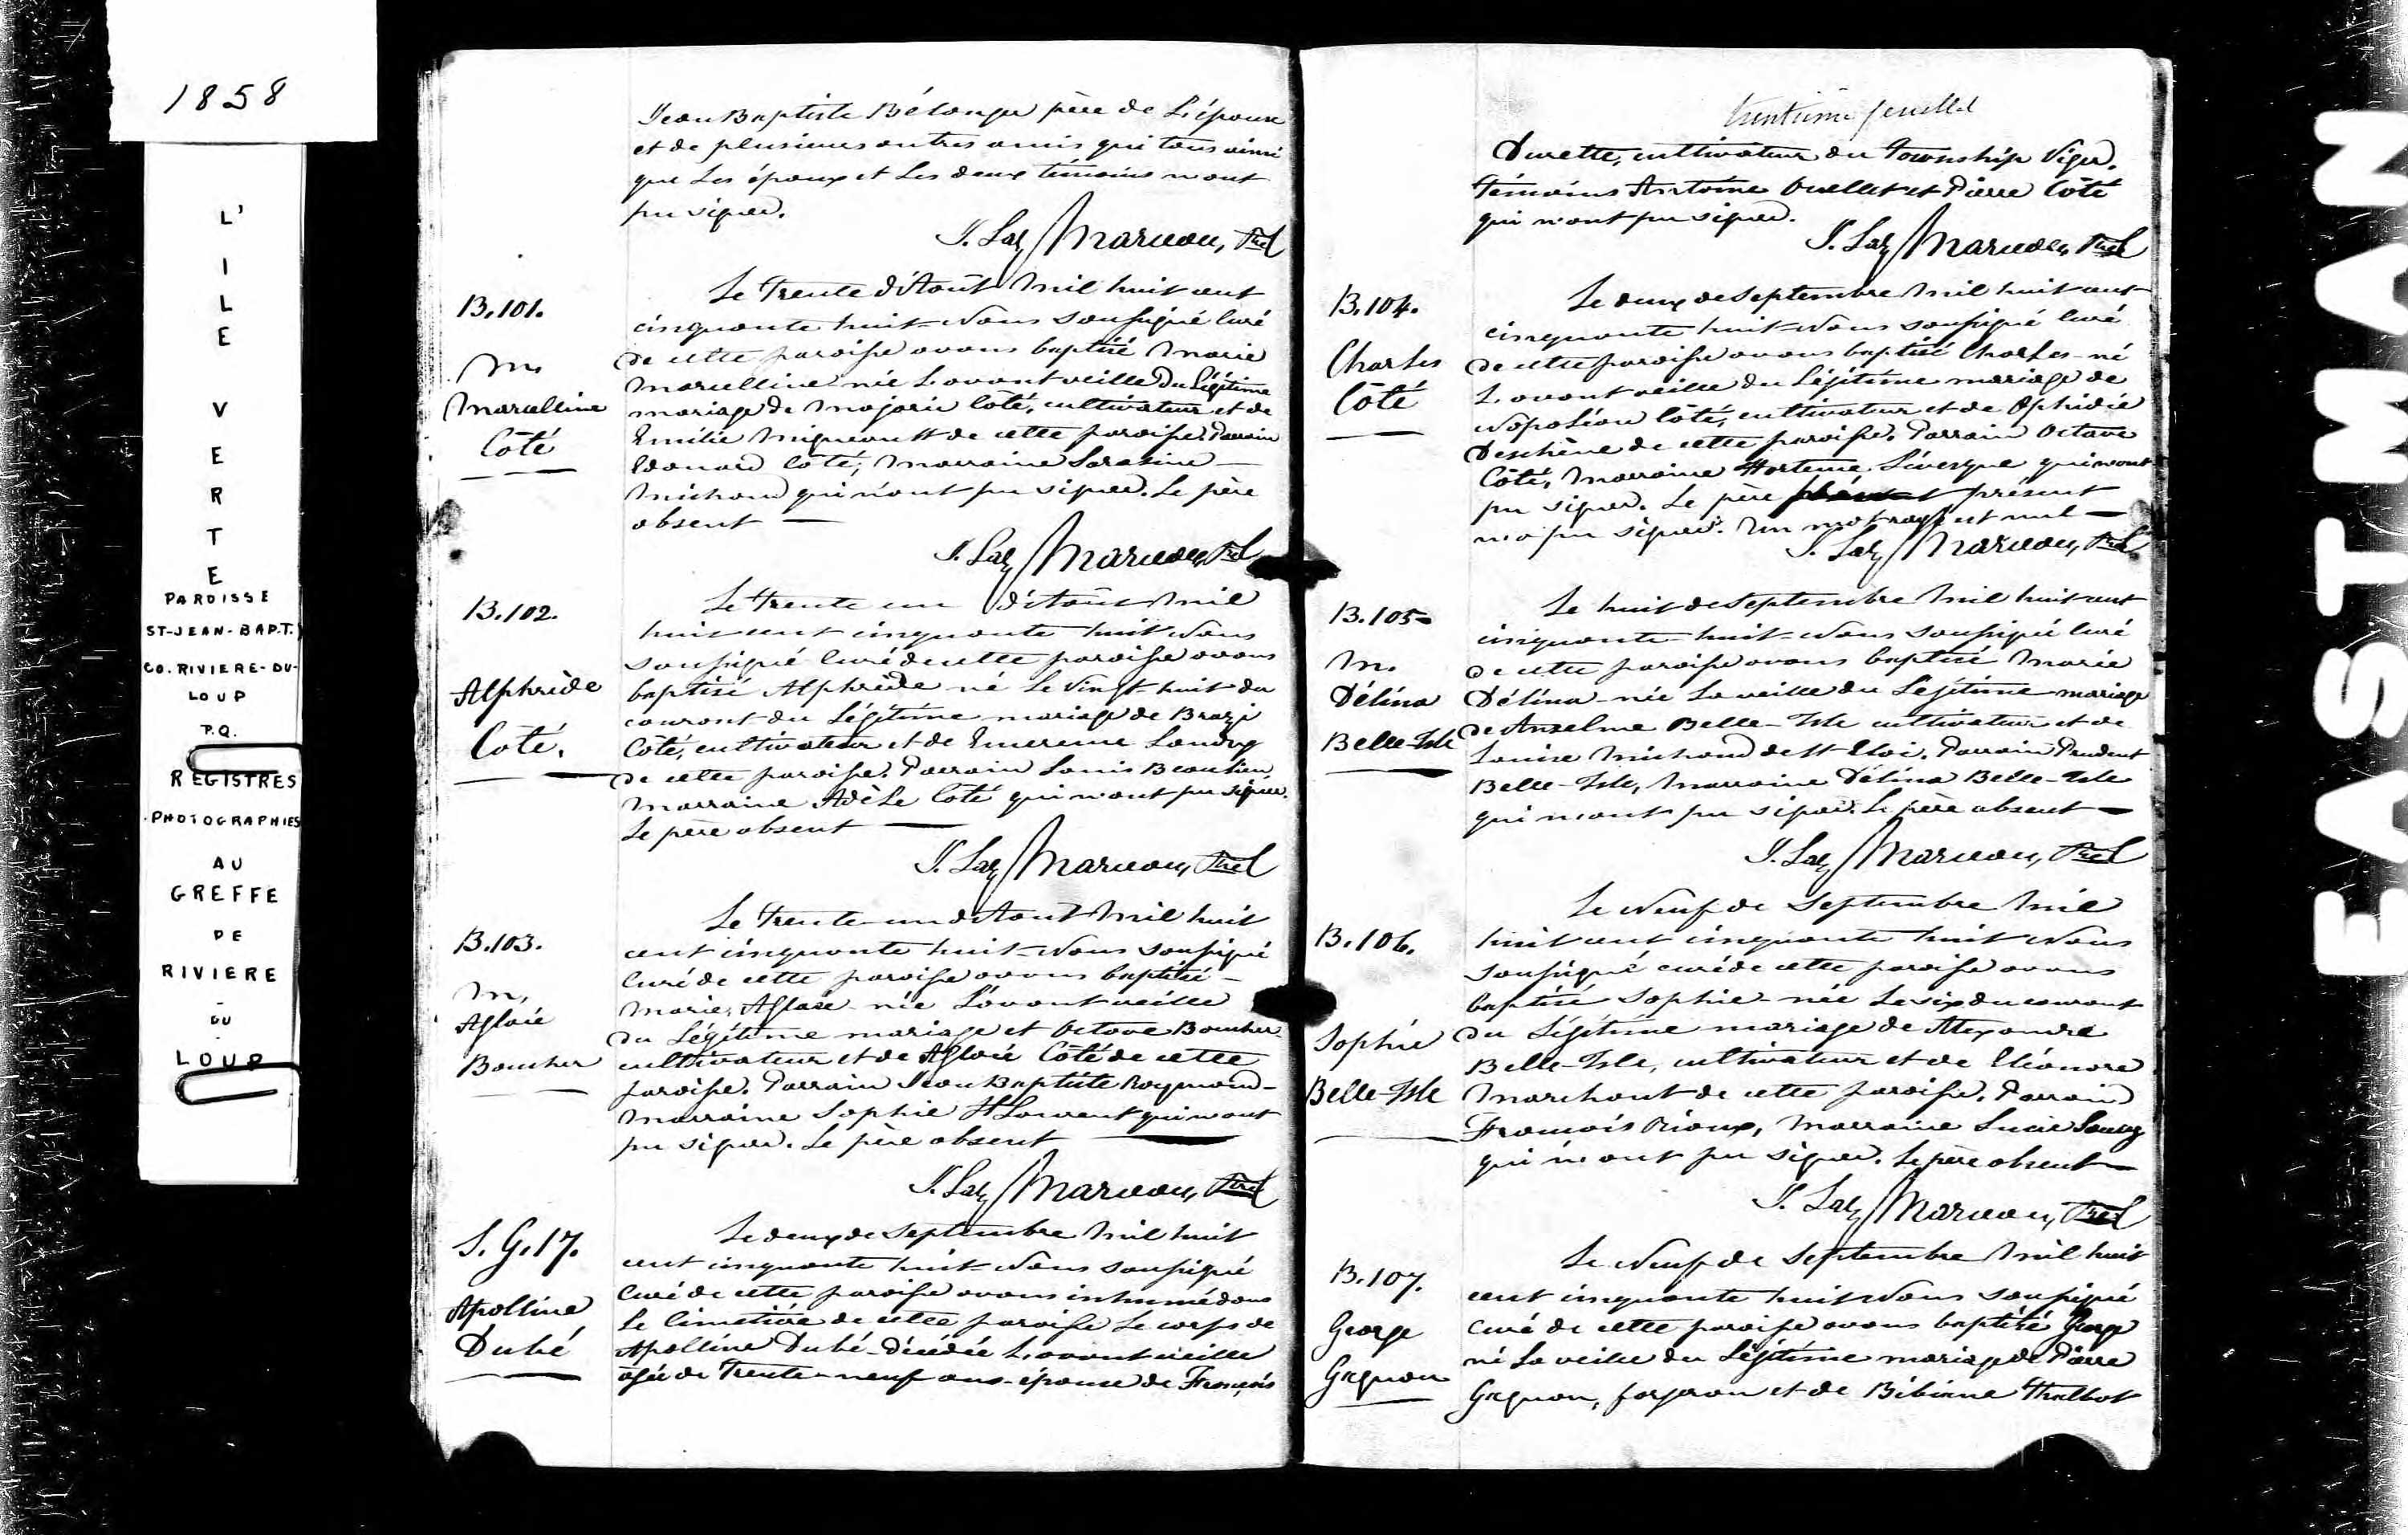 1858
L'
I
L
E
V
E
R
T
E
PAROISSE
ST-JEAN-BAPT.
CO. RIVIERE-DU-
LOUP
P.Q.
REGISTRES
PHOTOGRAPHIES
AU
GREFFE
DE
RIVIERE
-
DU
-
LOUP
Jean Baptiste Bélanger père de L'épouse
et de plusieurs autres amis qui tous ainsi
que Les époux et Les deux témoins n'ont
pu signer.
J. Laz Marceau, Ptre
B.101.
M.
Marcelline
Côté
Le Trente d'Août Mil huit cent
cinquante huit Nous soussigné Curé
de cette paroisse avons baptisé Marie
Marcelline née L'avant veille du Légitime
mariage de Majoric Côté, cultivateur et de
Emilie Migneault de cette paroisse. Parrain
Edouard Côté, Marraine Sarasine
Michaud qui n'ont pu signer. Le père
absent
J. Laz Marceau, Ptre
B.102.
Alphrède
Côté.
Le Trente un d'Août Mil
huit cent cinquante huit Nous
soussigné Curé de cette paroisse avons
baptisé Alphrède né Le vingt huit du
courant du Légitime mariage de
Côté, cultivateur et de Emerence Landry
de cette paroisse. Parrain Louis Beaulieu,
Marraine Adèle Côté qui n'ont pu signer.
Le père absent
J. Laz Marceau, Ptre
B.103.
M.
Aglaié
Boucher
Le Trente un d'Août Mil huit
cent cinquante huit Nous soussigné
Curé de cette paroisse avons baptisé
Marie, Aglaée née L'avant veille
du Légitime mariage et Octave Boucher
cultivateur et de Aglaié Côté de cette
paroisse. Parrain Jean Baptiste Raymond
Marraine Sophie St Laurent qui n'ont
pu signer. Le père absent
J. Laz Marceau, Ptre
S.G.17.
Apolline
Dubé
Le deux de Septembre Mil huit
cent cinquante huit Nous soussigné
Curé de cette paroisse avons inhumé dans
Le Cimetière de cette paroisse Le corps de
Apolline Dubé décédée L'avant veille
âgée de Trente-neuf ans épouse de François
trentième feuillet
Durette, cultivateur du Township Viger.
Témoins Antoine Ouellet et Pierre Côté
qui n'ont pu signer.
J. Laz Marceau, Ptre
B.104.
Charles
Côté
Le deux de Septembre Mil huit cent
cinquante huit Nous soussigné Curé
de cette paroisse avons baptisé Charles né
L'avant veille du Légitime mariage de
Napoléon Côté, cultivateur et de Ophidie
Deschène de cette paroisse. Parrain Octave
Côté, Marraine Hortense Lévesque qui n'ont
pu signer. Le père présent
n'a pu signer. Un mot rayé est nul
J. Laz Marceau, Ptre
B.105
M.
Délina
Belle-Isle
Le huit de Septembre Mil huit cent
cinquante huit Nous soussigné Curé
de cette paroisse avons baptisé Marie
Délina née La veille du Légitime mariage
de Anselme Belle-Isle cultivateur et de
Louise Michaud de St Eloi. Parrain Prudent
Belle-Isle, Marraine Délina Belle-Isle
qui n'ont pu signer. Le père absent
J. Laz Marceau, Ptre
B.106.
Sophie
Belle-Isle
Le Neuf de Septembre Mil
huit cent cinquante huit Nous
soussigné curé de cette paroisse avons
baptisé Sophie née Le six du courant
du Légitime mariage de Alexandre
Belle-Isle, cultivateur et de Eléonore
Marchant de cette paroisse. Parrain
François Rioux, Marraine Lucie
qui n'ont pu signer. Le père absent
J. Laz Marceau, Ptre
B.107.
George
Gagnon
Le Neuf de Septembre Mil huit
cent cinquante huit Nous soussigné
Curé de cette paroisse avons baptisé George
né La veille du Légitime mariage de Pierre
Gagnon, forgeron et de Bibiane Thalbot
EASTMAN